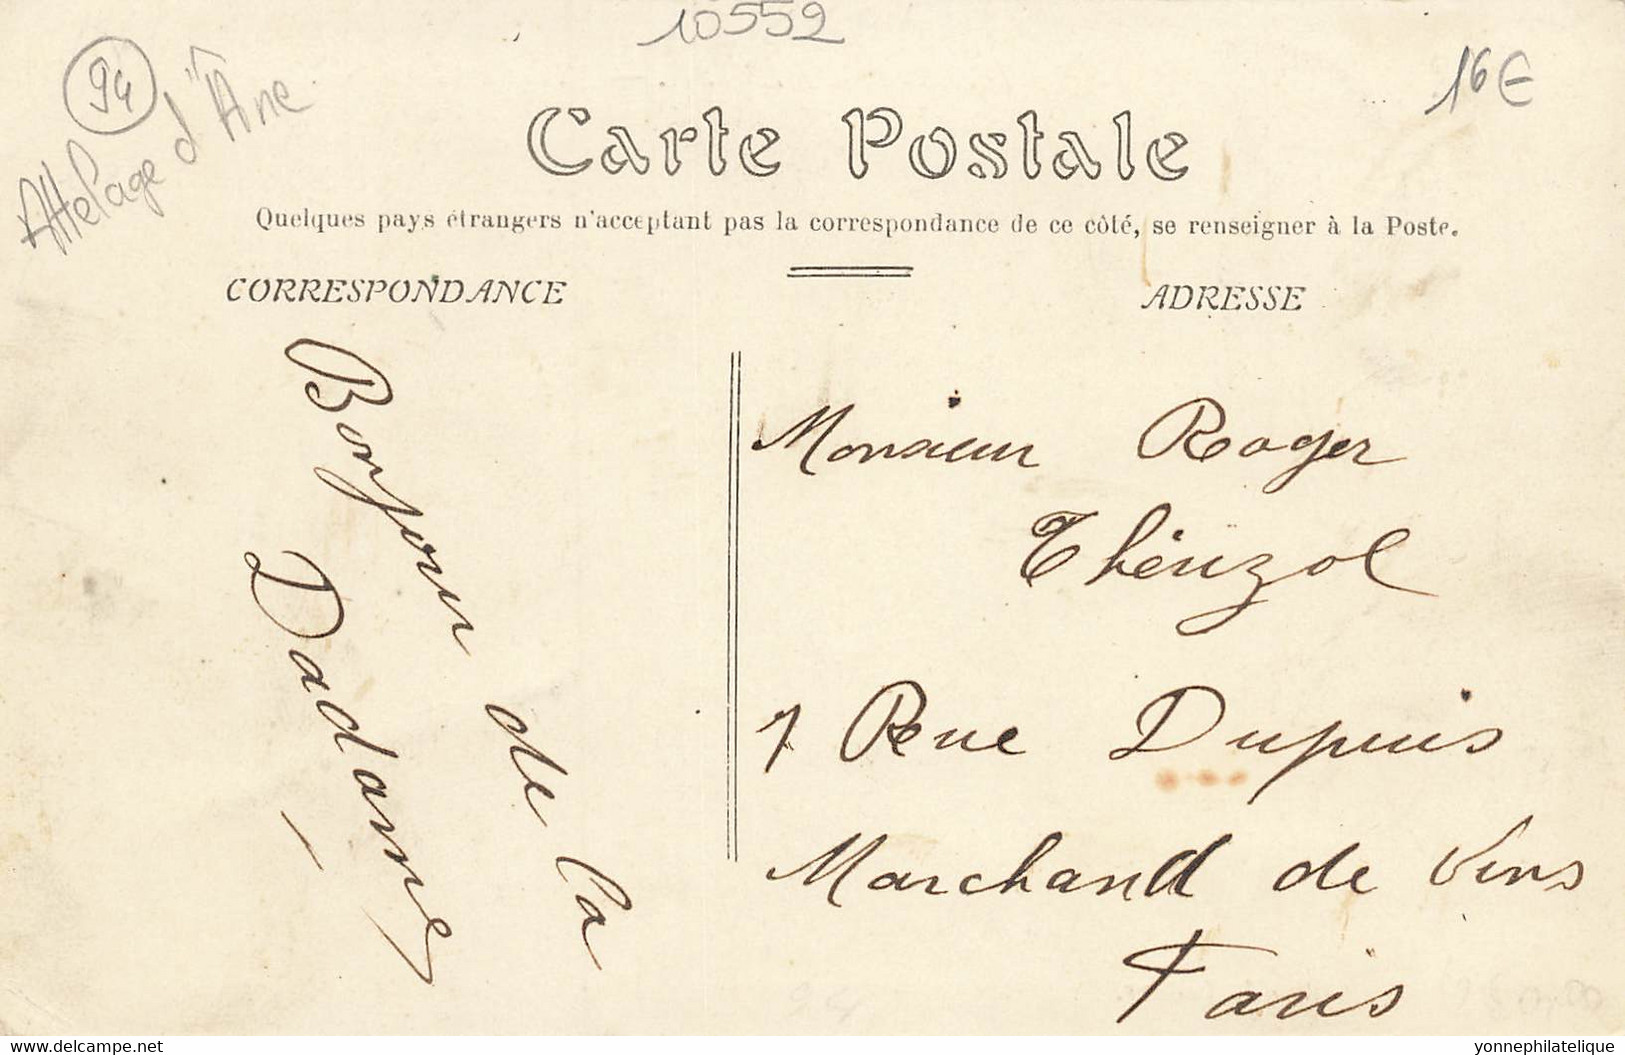 10559
94
Attelage d'Âne
16€
Carte Postale
Quelques pays étrangers n'acceptant pas la correspondance de ce côté, se renseigner à la Poste.
CORRESPONDANCE
ADRESSE
Bonjour de la
Dadame
Monsieur Roger
7 Rue Dupuis
Marchand de Vins
Paris
www.delcampe.net
yonnephilatelique